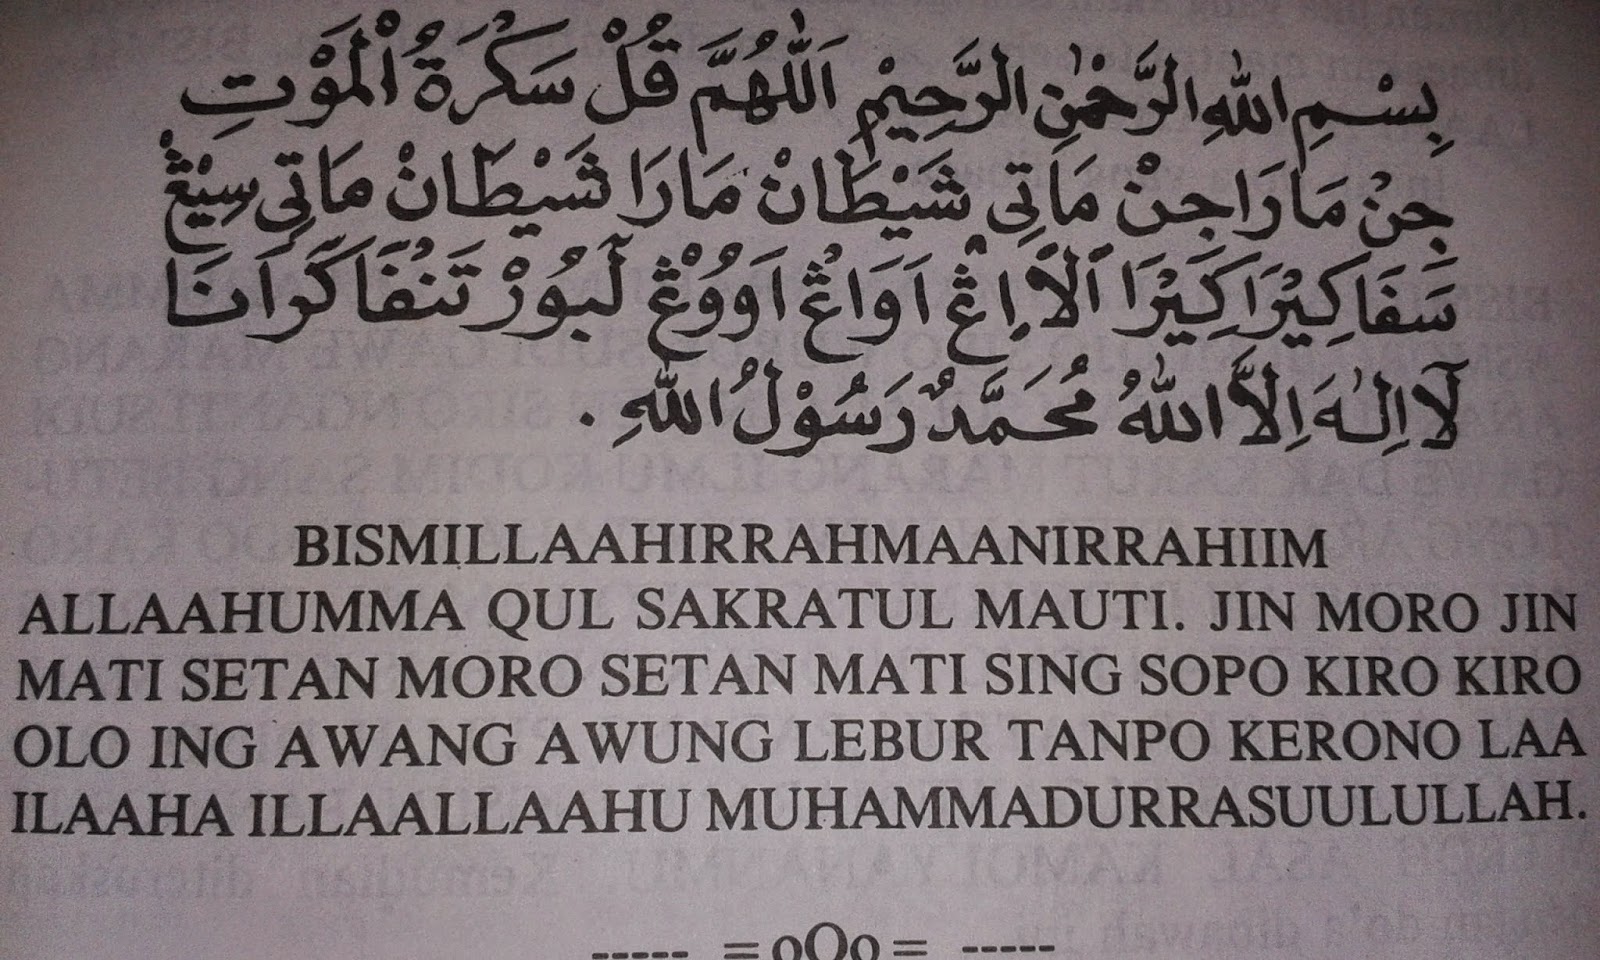 بِسْمِ اللهِ الرَّحْمٰنِ الرَّحِيْمِ اَللّٰهُمَّ قُلْ سَكْرَةُ الْمَوْتِ
جِنْ مَارَا جِنْ مَاتِى شَيْطَانْ مَارَا شَيْطَانْ مَاتِى سِيْڠْ
سَفَا كِيْرَا كِيْرَا اَلَا اِڠْ اَوَاڠْ اَوُوْڠْ لَبُوْرْ تَنْفَا كَرَانَا
لَآ اِلٰهَ اِلَّا اللهُ مُحَمَّدٌ رَسُوْلُ اللهِ .
BISMILLAAHIRRAHMAANIRRAHIIM
ALLAAHUMMA QUL SAKRATUL MAUTI. JIN MORO JIN
MATI SETAN MORO SETAN MATI SING SOPO KIRO KIRO
OLO ING AWANG AWUNG LEBUR TANPO KERONO LAA
ILAAHA ILLAALLAAHU MUHAMMADURRASUULULLAH.
----- =oOo= -----